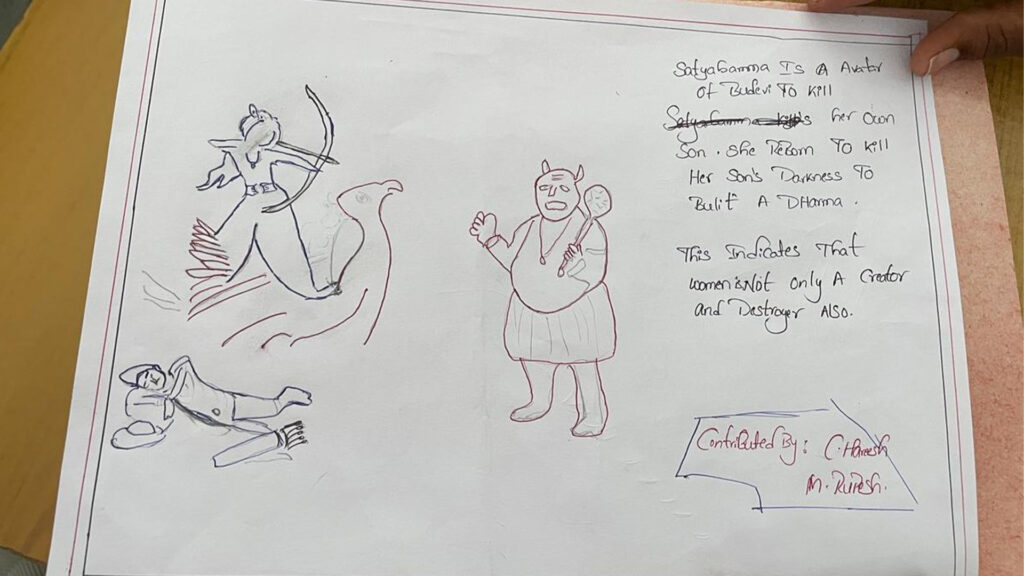 Satyabamma Is A Avatar
of Budevi To kill
her own
Son. She Reborn To kill
Her Son's Darkness To
Bulit A DHarma.
This Indicates That
women is Not only A Creator
and Destroyer Also.
Contributed By: C.Hareesh
M. RUPesh.